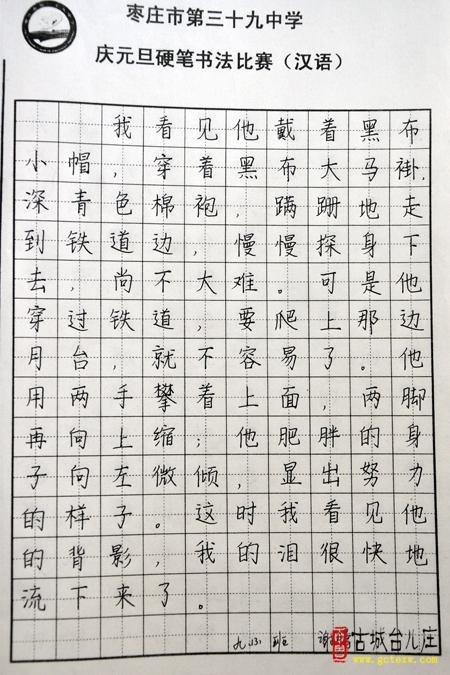 枣庄市第三十九中学
庆元旦硬笔书法比赛（汉语）
我看见他戴着黑布
小帽，穿着黑布大马褂，
深青色棉袍，蹒跚地走
到铁道边，慢慢探身下
去，尚不大难。可是他
穿过铁道，要爬上那边
月台，就不容易了。他
用两手攀着上面，两脚
再向上缩；他肥胖的身
子向左微倾，显出努力
的样子。这时我看见他
的背影，我的泪很快地
流下来了。
班 谢
古城台儿庄
www.gctezw.com